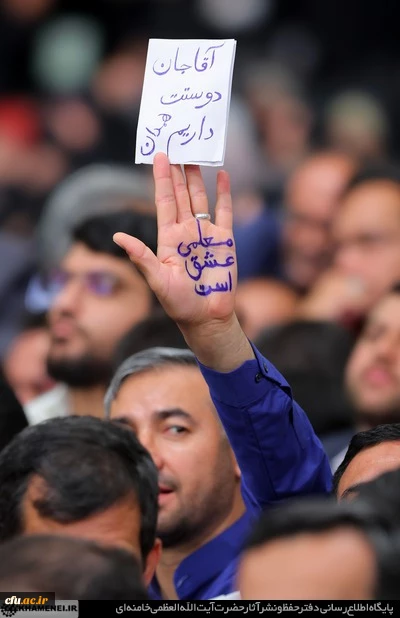 آقاجان
دوستت
داریم همدان
معلمی
عشق
است
cfu.ac.ir
KHAMENEI.IR
پایگاه اطلاع‌رسانی دفتر حفظ و نشر آثار حضرت آیت‌الله‌العظمی خامنه‌ای